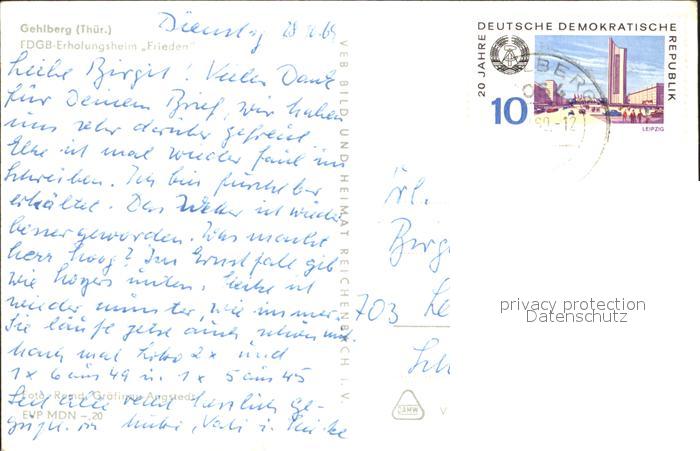 Gehlberg (Thür.)
FDGB-Erholungsheim „Frieden"
Dienstag
Liebe Birgit! Vielen Dank
für Deinen Brief, wir haben
uns sehr darüber gefreut.
Elke ist mal wieder faul im
Schreiben. Ich bin furchtbar
erkältet. Das Wetter ist wieder
besser geworden. Was macht
Herr Hoog? Im Ernstfall gib
wie unten.
wieder munter, wie immer.
Sie läufe gehe auch schon mal.
noch mal Lotto 2x und
1x 6 aus 49 u. 1x 5 aus 45
Seid alle recht herzlich ge-
Foto: Gräfinau-Angstedt
EVP MDN -,20
Mutti, Vati u.
VEB BILD UND HEIMAT REICHENBACH I. V.
20 JAHRE DEUTSCHE DEMOKRATISCHE REPUBLIK
10
LEIPZIG
Frl.
Birg
703 Le
privacy protection
Datenschutz
Sch
V